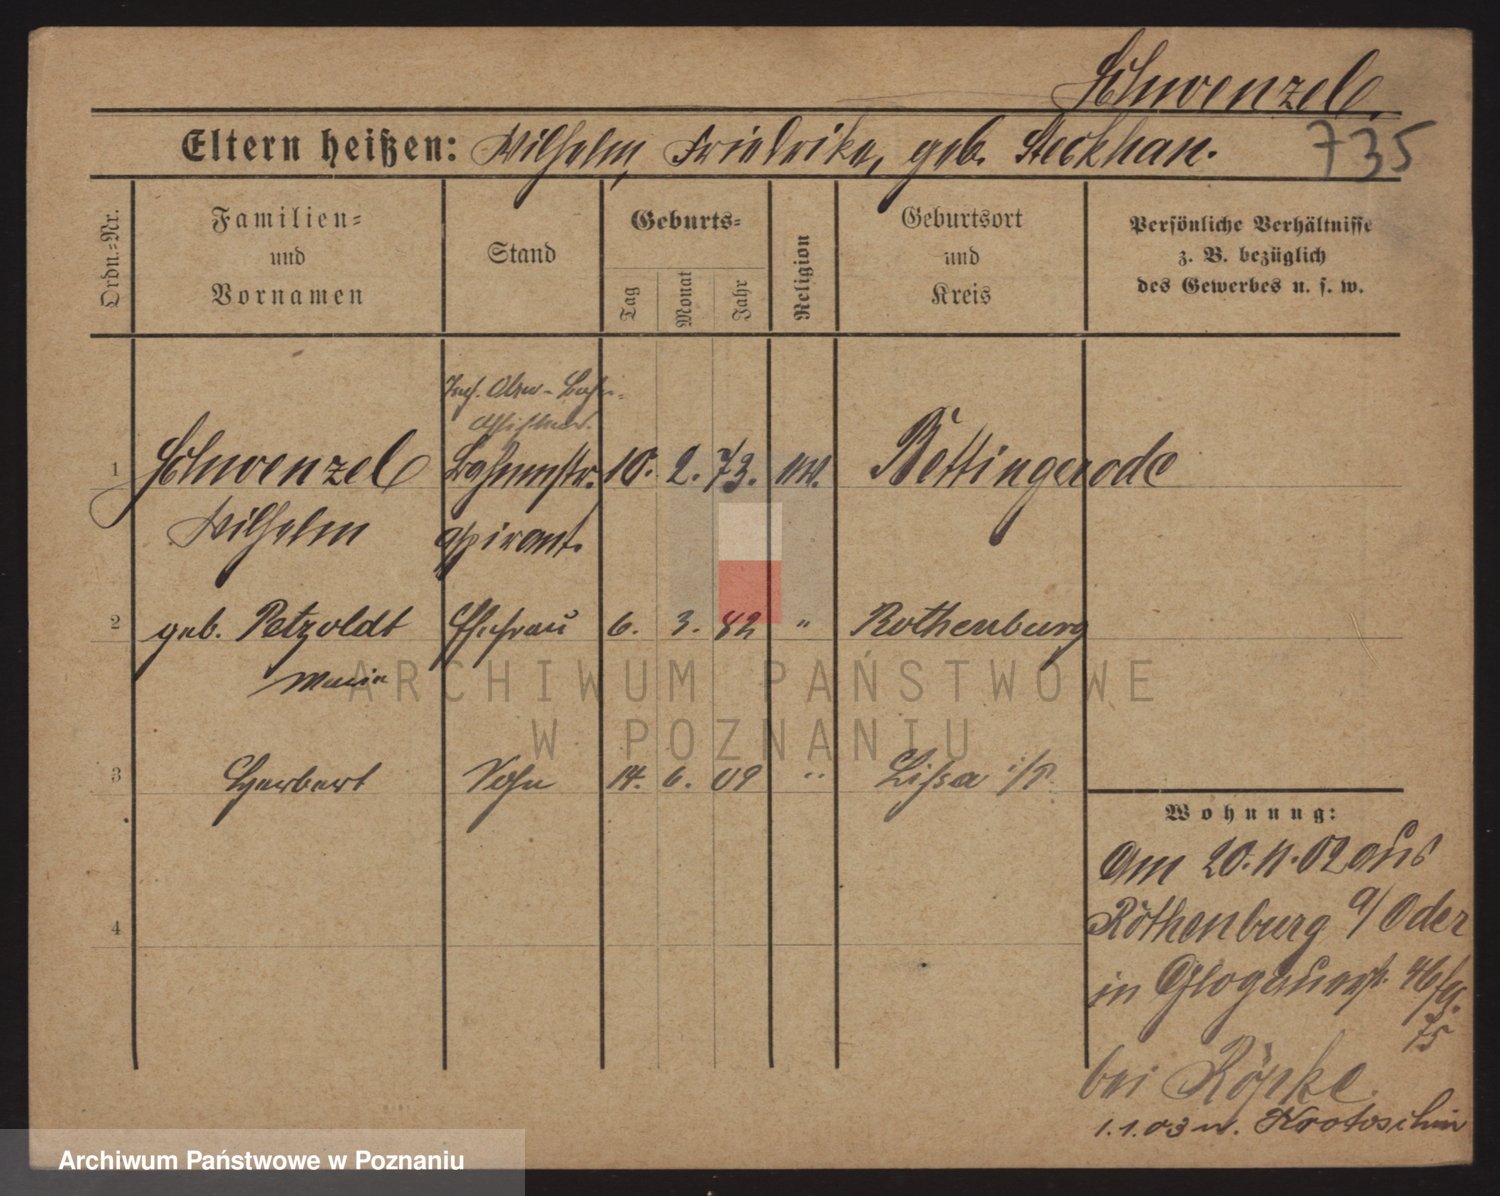 Schwenzel.
Eltern heißen: Wilhelm, Friedrike, geb. Steckhan.
735
Ordn.-Nr.
Familien-
und
Vornamen
Stand
Geburts-
Tag
Monat
Jahr
Religion
Geburtsort
und
Kreis
Persönliche Verhältnisse
z. B. bezüglich
des Gewerbes u. s. w.
1 Schwenzel Bahnmstr. 10. 2. 73. ev. Bettingerode
Wilhelm aspirant.
2 geb. Petzoldt Ehefrau 6. 3. 82 " Rothenburg
Maria
3 Herbert Sohn 14. 6. 09 " Lissa i/P.
4
Wohnung:
Am 20.11.02 aus
Rothenburg a/Oder
in Glogauerstr. 46/
75
bei Röpke.
1.1.03 n. Krotoschin
ARCHIWUM PAŃSTWOWE
W POZNANIU
Archiwum Państwowe w Poznaniu